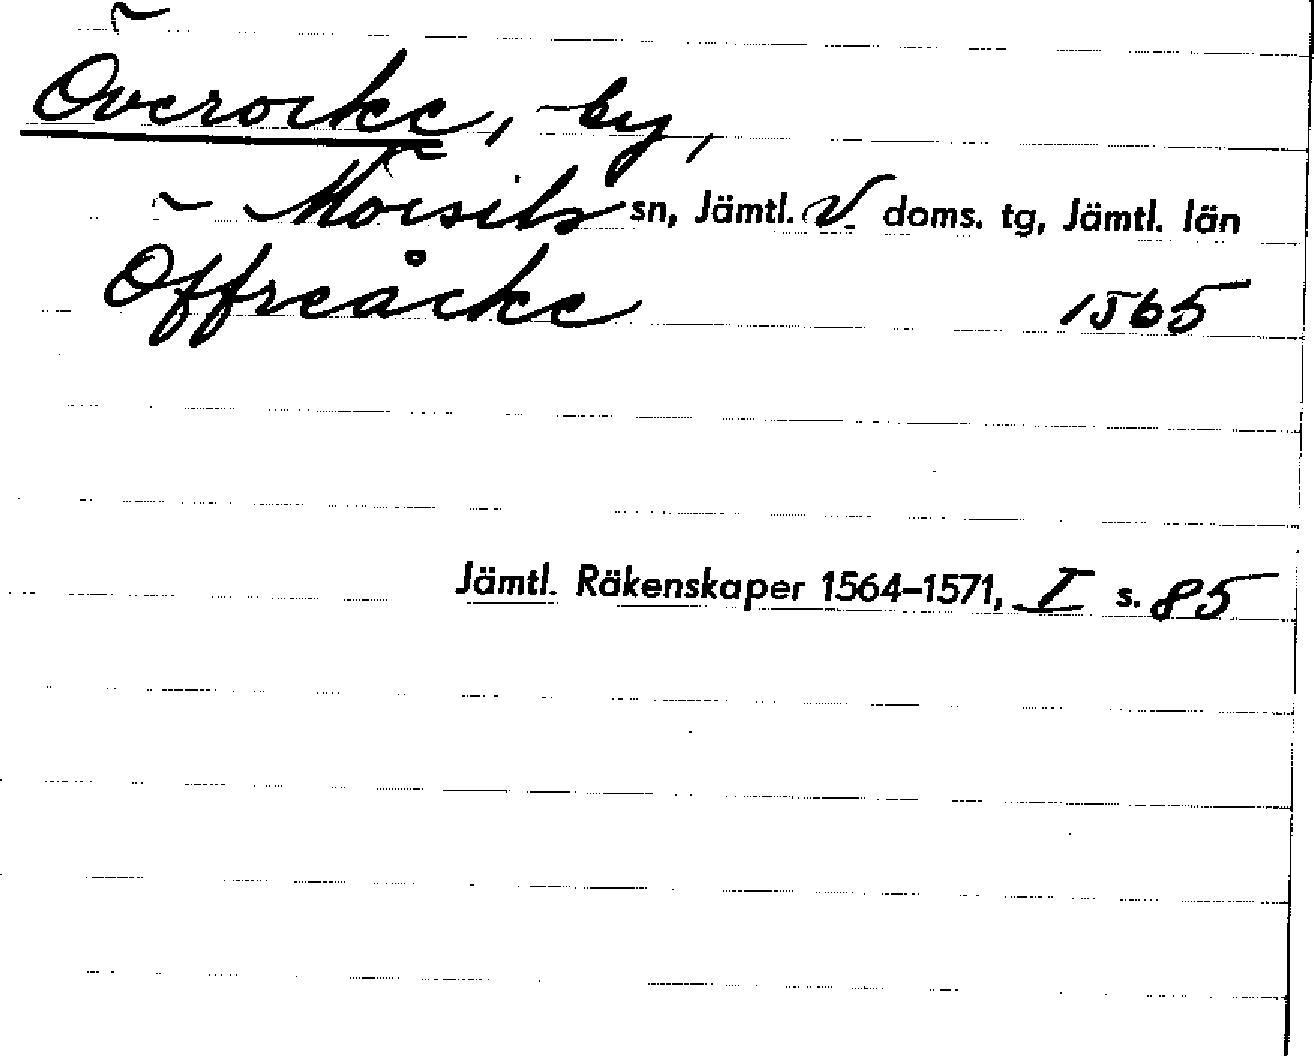 Överocke, -by,
Mörsils sn, Jämtl. V. doms. tg, Jämtl. län
Offreåcke 1565
Jämtl. Räkenskaper 1564–1571, I s. 85